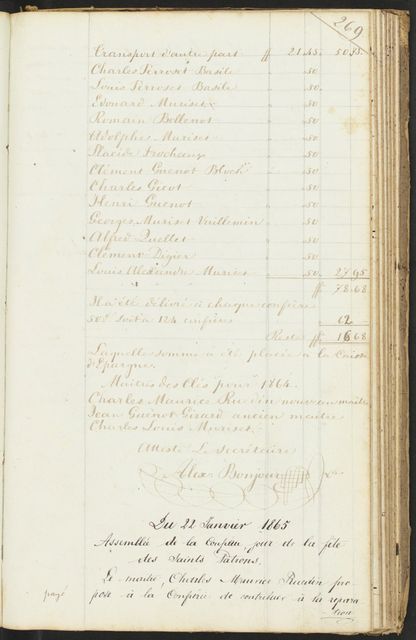 269
Transport d'autre part ₣ 21.45. 50.73.
Charles Perroset Basile " .50
Louis Perroset Basile " .50.
Edouard Muriset " .50
Romain Bellenot " .50
Adolphe Muriset " .50
Placide Frochaux " .50
Clément Guenot Bloch " .50
Charles Gicot " .50
Henri Guenot " .50
Georges Muriset Vuillemin " .50
Alfred Quellet " .50
Clément Digier " .50
Louis Alexandre Muriset " .50. 27.95
₣ 78.68
Il a été délivré à chaque confrère
50c soit à 124 confrères 62.
Reste ₣ 16.68
Laquelle somme a été placée à la Caisse
d'Epargne.
Maîtres des Clés pour 1864.
Charles Maurice Ruedin nouveau maître
Jean Guénot Girard ancien maître
Charles Louis Muriset.
Atteste Le Secrétaire
Alex. Bonjour
Du 22 Janvier 1865
Assemblée de la Confrérie, jour de la fête
des Saints Patrons.
Le maître, Charles Maurice Ruedin pro-
payé
pose à la Confrérie de contribuer à la répara-
tion